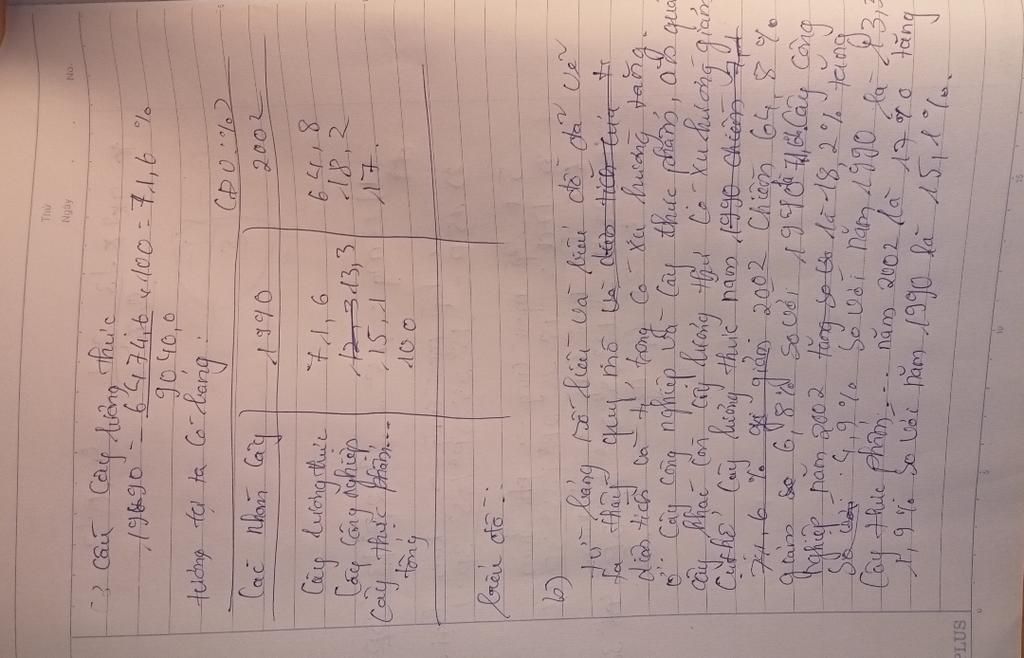 No.
Thứ
Ngày
(*) cơ cấu cây lương thực
1990 = 6474,6 x 100 = 71,6 %
9040,0
tương tự ta có bảng:
(ĐV: %)
Các nhóm cây 1990 2002
Cây lương thực 71,6 64,8
Cây công nghiệp 13,3 18,2
Cây thực phẩm... 15,1 17
tổng 100
biểu đồ:
b)
từ bảng số liệu và biểu đồ đã vẽ
ta thấy quy mô và
diện tích và tỉ trọng có xu hướng tăng.
ở cây công nghiệp và cây thực phẩm, ăn quả
cây khác còn cây lương thực có xu hướng giảm
cụ thể cây lương thực năm 1990 chiếm 71
71,6 % giảm 2002 chiếm 64,8 %
giảm 6,8% so với 1990. Cây công
nghiệp năm 2002 là 18,2% tăng
so với 4,9% so với năm 1990 là 13,3
Cây thực phẩm... năm 2002 là 17% tăng
1,9% so với năm 1990 là 15,1%.
PLUS